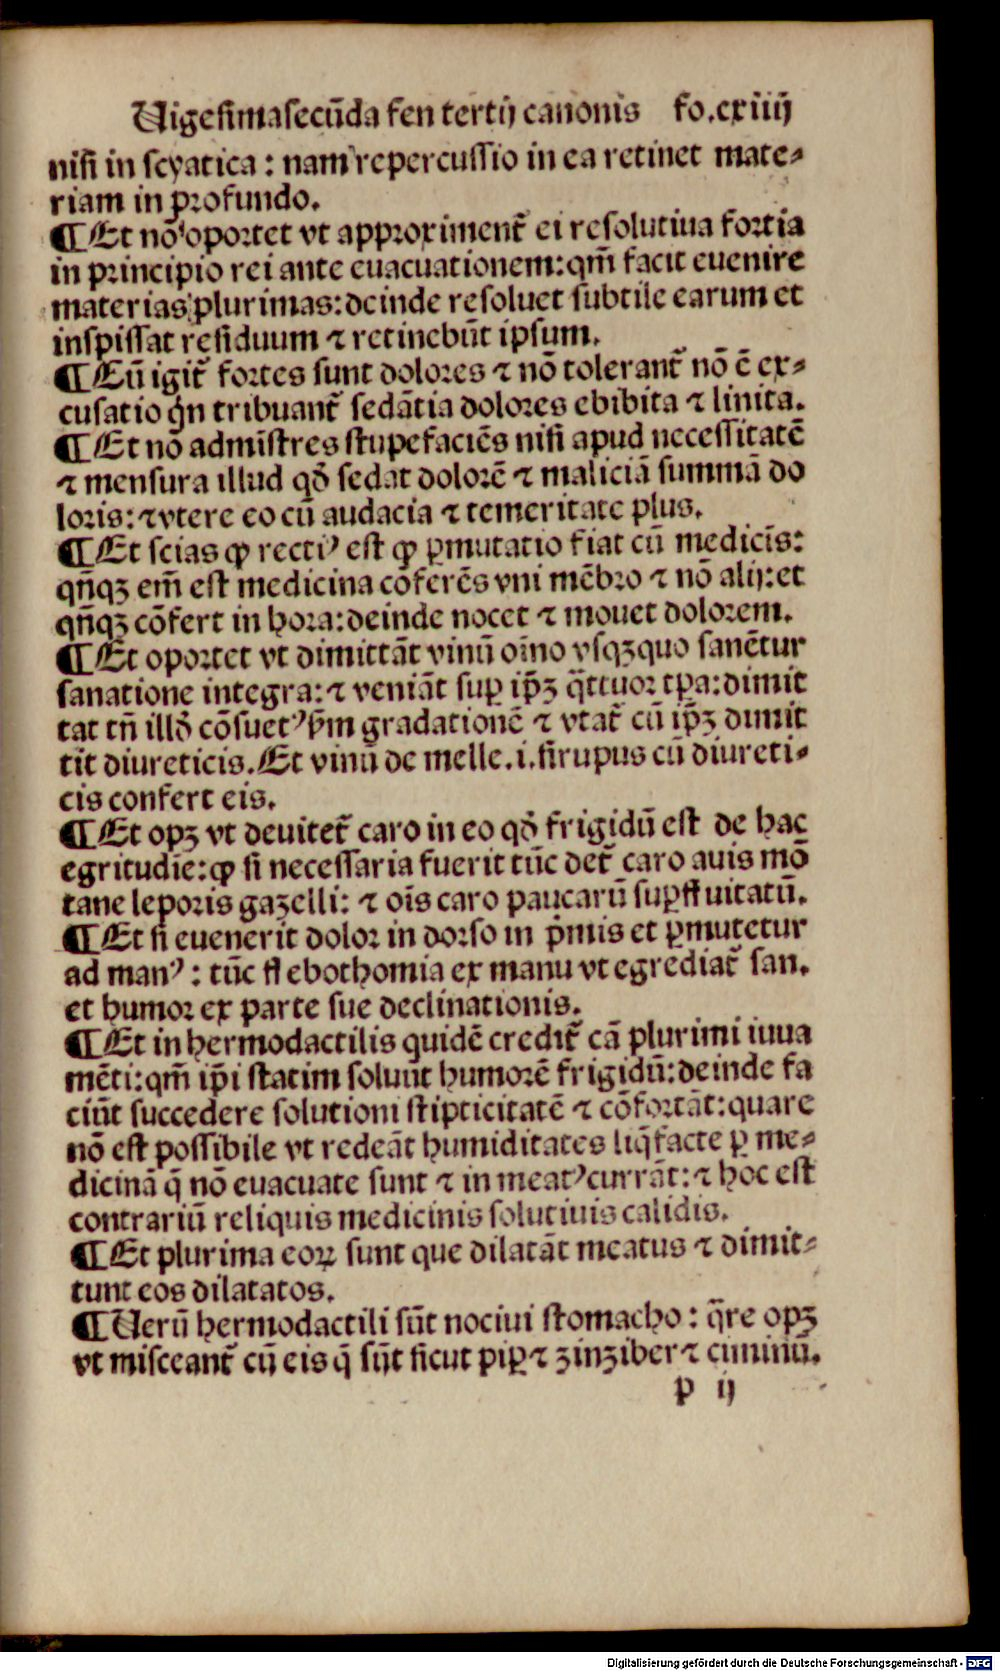 Uigesimasecūda fen tertij canonis fo.cxiiij
nisi in scyatica : nam repercussio in ea retinet mate-
riam in profundo.
¶ Et nō oportet vt approximent̄ ei resolutiua fortia
in principio rei ante euacuationem: qm̄ facit euenire
materias plurimas: deinde resoluet subtile earum et
inspissat residuum ⁊ retinebūt ipsum.
¶ Cū igit̄ fortes sunt dolores ⁊ nō tolerant̄ nō ē ex-
cusatio qn̄ tribuant̄ sedātia dolores ebibita ⁊ linita.
¶ Et nō admīstres stupefaciēs nisi apud necessitatē
⁊ mensura illud qđ sedat dolorē ⁊ maliciā summā do
loris: ⁊ vtere eo cū audacia ⁊ temeritate plus.
¶ Et scias ꝙ recti⁹ est ꝙ ꝑmutatio fiat cū medicīs:
qn̄qꝫ em̄ est medicina cōferēs vni mēbro ⁊ nō alij: et
qn̄qꝫ cōfert in hora: deinde nocet ⁊ mouet dolorem.
¶ Et oportet vt dimittāt vinū oīno vsqꝫquo sanētur
sanatione integra: ⁊ veniāt suꝑ ip̄ꝫ q̄ttuor tp̄a: dimit
tat tn̄ illđ cōsuet⁹ ꝑm gradationē ⁊ vtat̄ cū ip̄ꝫ dimit
tit diureticis. Et vinū de melle .i. sirupus cū diureti-
cis confert eis.
¶ Et opꝫ vt deuitet̄ caro in eo qđ frigidū est de hac
egritudīe: ꝙ si necessaria fuerit tūc det̄ caro auis mō
tane leporis gazelli: ⁊ oīs caro paucarū suꝑfluitatū.
¶ Et si euenerit dolor in dorso in p̄mis et ꝑmutetur
ad man⁹ : tūc flebothomia ex manu vt egrediat̄ san.
et humor ex parte sue declinationis.
¶ Et in hermodactilis quidē credit̄ cā plurimi iuua
mēti: qm̄ ip̄i statim soluūt humorē frigidū: deinde fa
ciūt succedere solutioni stipticitatē ⁊ cōfortāt: quare
nō est possibile vt redeāt humiditates liq̄facte ꝑ me-
dicinā q̄ nō euacuate sunt ⁊ in meat⁹ currāt: ⁊ hoc est
contrariū reliquis medicinis solutiuis calidis.
¶ Et plurima eoꝝ sunt que dilatāt meatus ⁊ dimit-
tunt eos dilatatos.
¶ Uerū hermodactili sūt nociui stomacho : q̄re opꝫ
vt misceant̄ cū eis q̄ sūt sicut piꝑ ⁊ zinziber ⁊ cuminū.
p ij
Digitalisierung gefördert durch die Deutsche Forschungsgemeinschaft - DFG